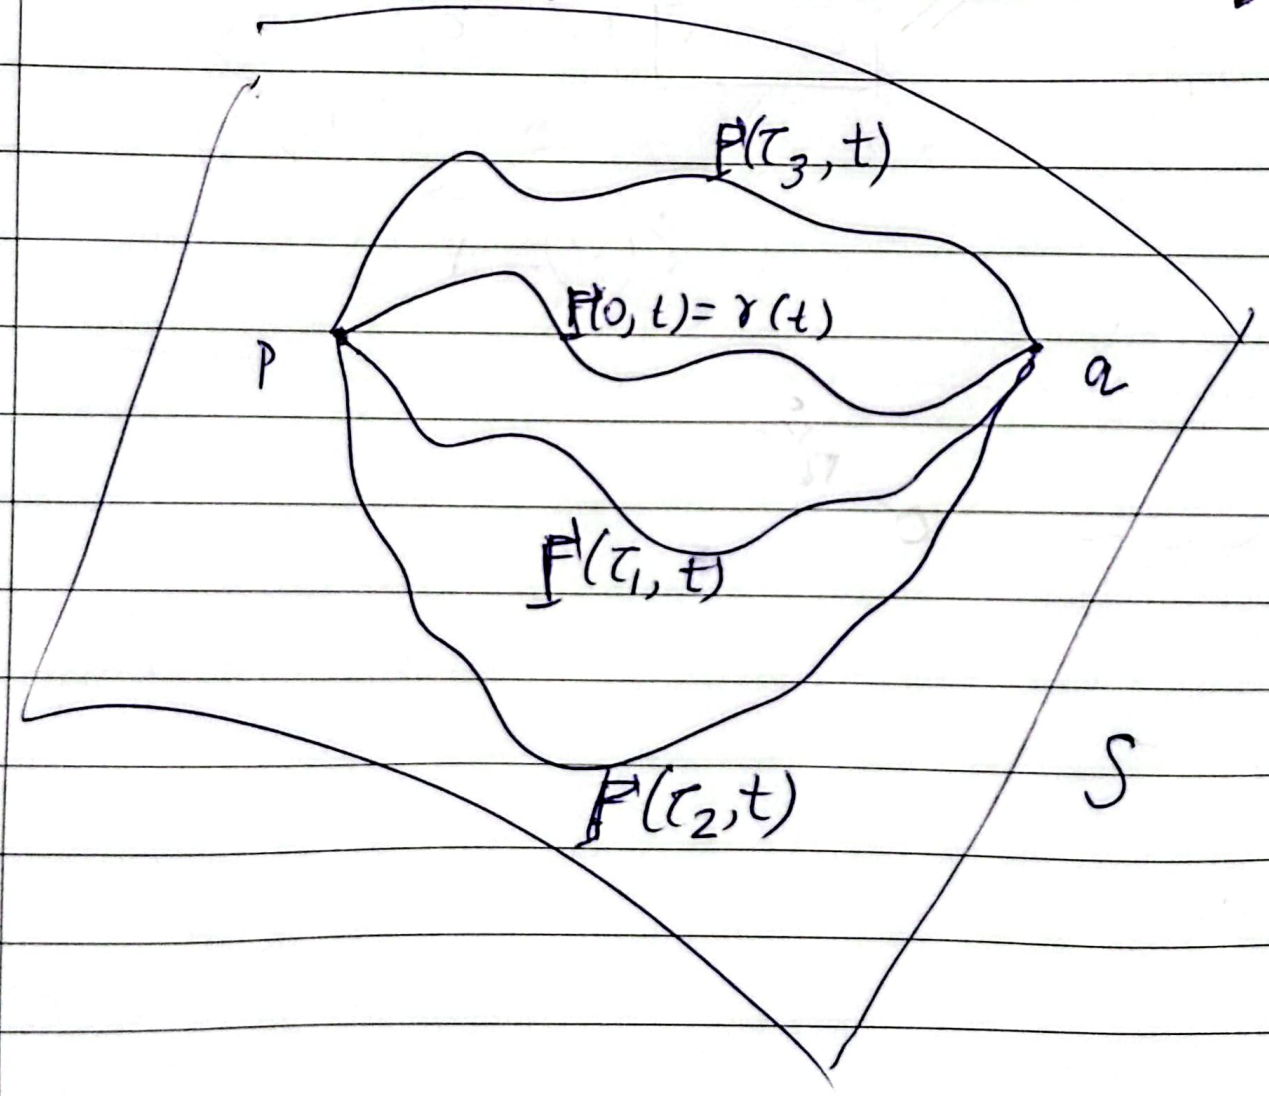 F(τ₃, t)
F(0, t) = γ(t)
p
q
F(τ₁, t)
S
F(τ₂, t)